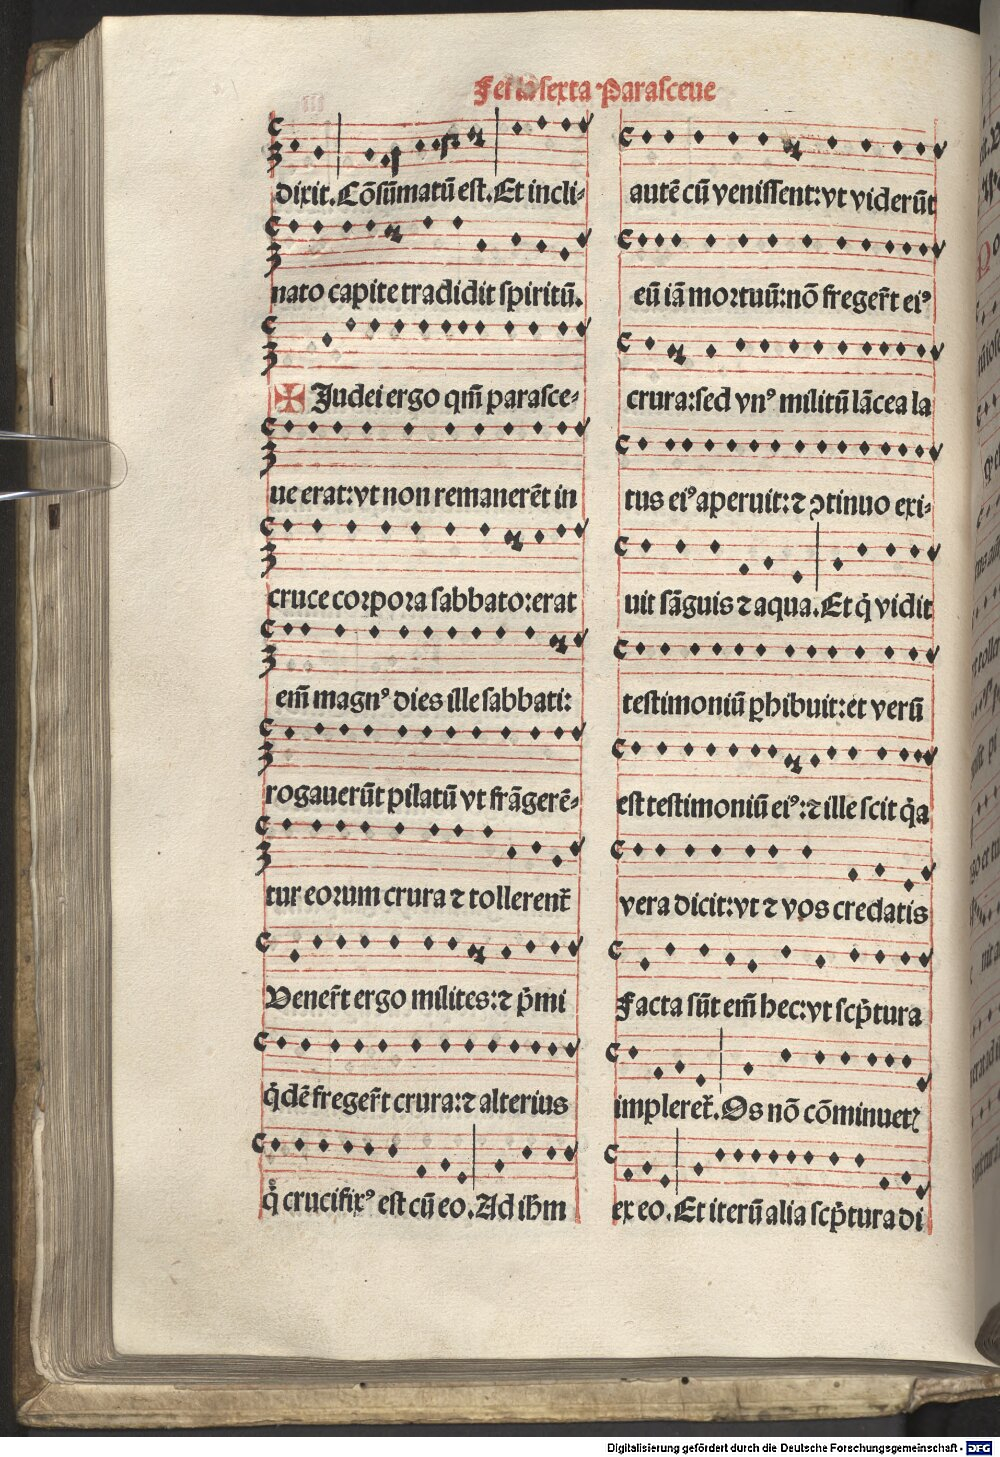 Feria sexta Parasceue
dixit. Cōsūmatū est. Et incli-
nato capite tradidit spiritū.
✠ Judei ergo qm̄ parasce-
ue erat: vt non remanerēt in
cruce corpora sabbato: erat
em̄ magnꝰ dies ille sabbati:
rogauerūt pilatū vt frāgerē-
tur eorum crura ⁊ tollerent᷑
Venerūt ergo milites: ⁊ p̄mi
q̇dē fregerūt crura: ⁊ alterius
q̇ crucifixꝰ est cū eo. Ad ihm
autē cū venissent: vt viderūt
eū iā mortuū: nō fregerūt eiꝰ
crura: sed vnꝰ militū lācea la
tus eiꝰ aperuit: ⁊ ꝯtinuo exi-
uit sāguis ⁊ aqua. Et q̇ vidit
testimoniū ꝑhibuit: et verū
est testimoniū eiꝰ: ⁊ ille scit q̇a
vera dicit: vt ⁊ vos credatis
Facta sūt em̄ hec: vt scp̄tura
impleret᷑. Os nō cōminuet᷑
ex eo. Et iterū alia scp̄tura di
Digitalisierung gefördert durch die Deutsche Forschungsgemeinschaft - DFG